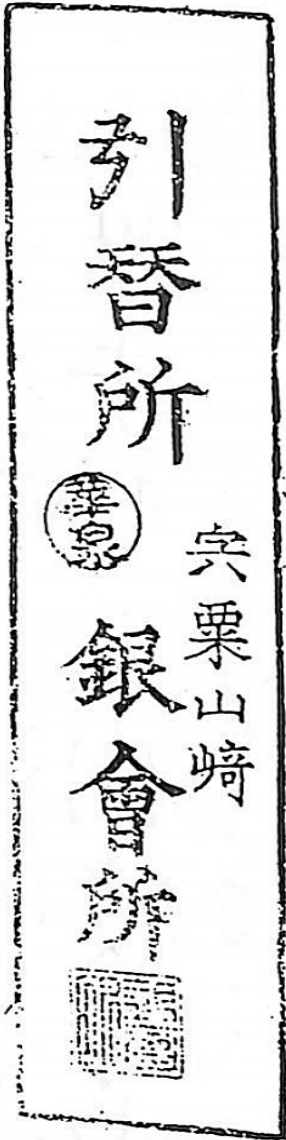 引替所
宍粟山﨑
銀會所